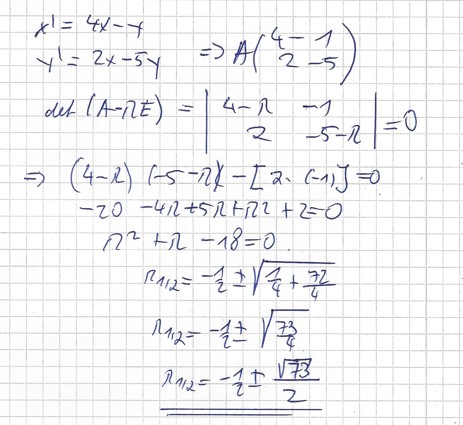 x' = 4x - y
y' = 2x - 5y ⇒ A(4 -1
2 -5)
det (A-λE) = |4-λ -1
2 -5-λ| = 0
⇒ (4-λ) (-5-λ) - [2·(-1)] = 0
-20 -4λ+5λ+λ² +2=0
λ² +λ -18=0
λ1/2= -1/2 ± √(1/4 + 72/4)
λ1/2= -1/2 ± √(73/4)
λ1/2= -1/2 ± √73/2